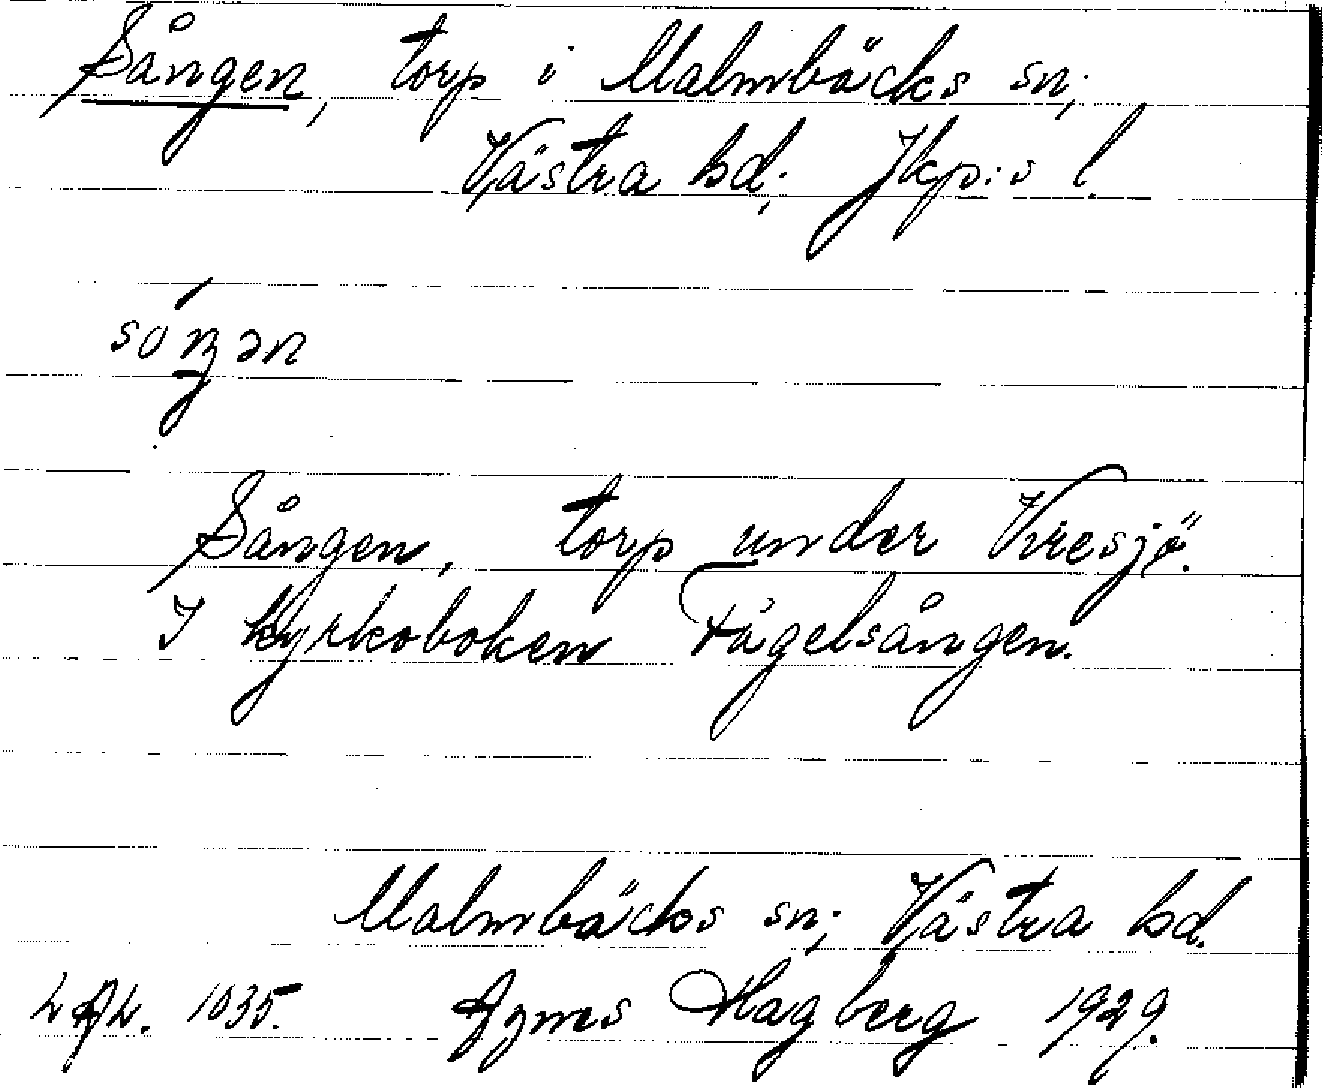 Sången, torp i Malmbäcks sn;
Västra hd; Jkp:s l.
sóŋən
Sången, torp under Vresjö.
I kyrkoboken Fågelsången.
Malmbäcks sn; Västra hd.
1035. Agnes Hagberg 1929.